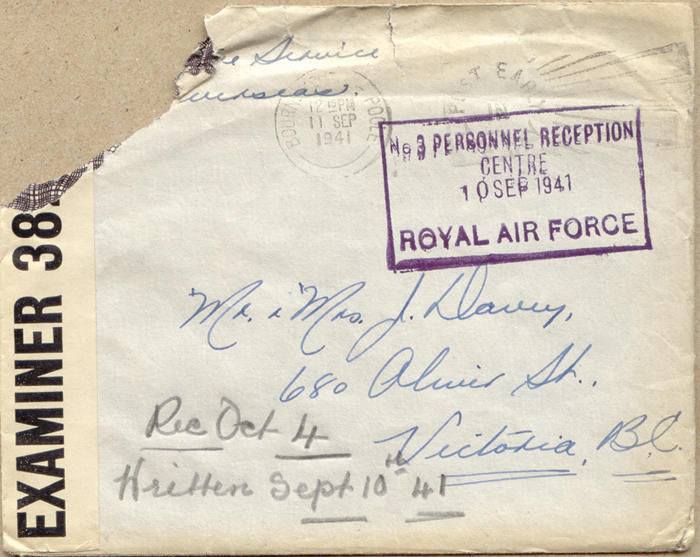 Service
Overseas.
12 PM
11 SEP
1941
POOLE
POST EARLY
No 3 PERSONNEL RECEPTION
CENTRE
10 SEP 1941
ROYAL AIR FORCE
EXAMINER 38
Mr. & Mrs. J. Davey,
680 Oliver St.,
Victoria, B.C.
Rec Oct 4
Written Sept 10th 41